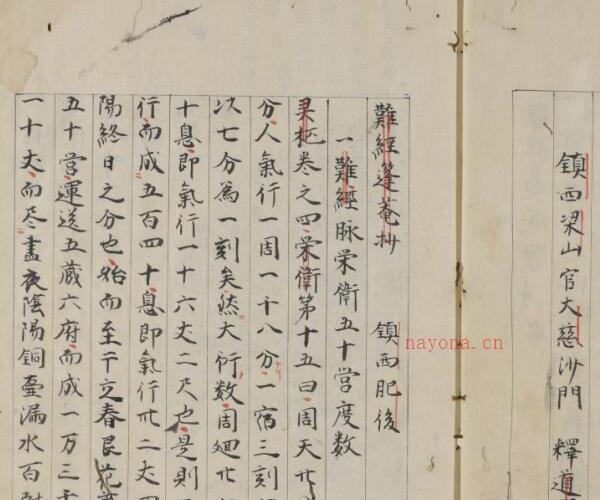 鎮西梁山官大慈沙門 釋道
難經篷菴抄 鎮西肥後
一難經脉栄衛五十営度数
灵枢卷之四栄衛第十五曰周天廿
分人氣行一周一十八分一宿三刻
次七分為一刻矣然大衍数周廻廿
十息即氣行一十六丈二尺也是則
行而成五百四十息即氣行卅二丈
陽終日之分也始而至于立春艮
五十営運送五蔵六府而成一万三
一十丈而尽晝夜陰陽銅壷漏水百
nayona.cn